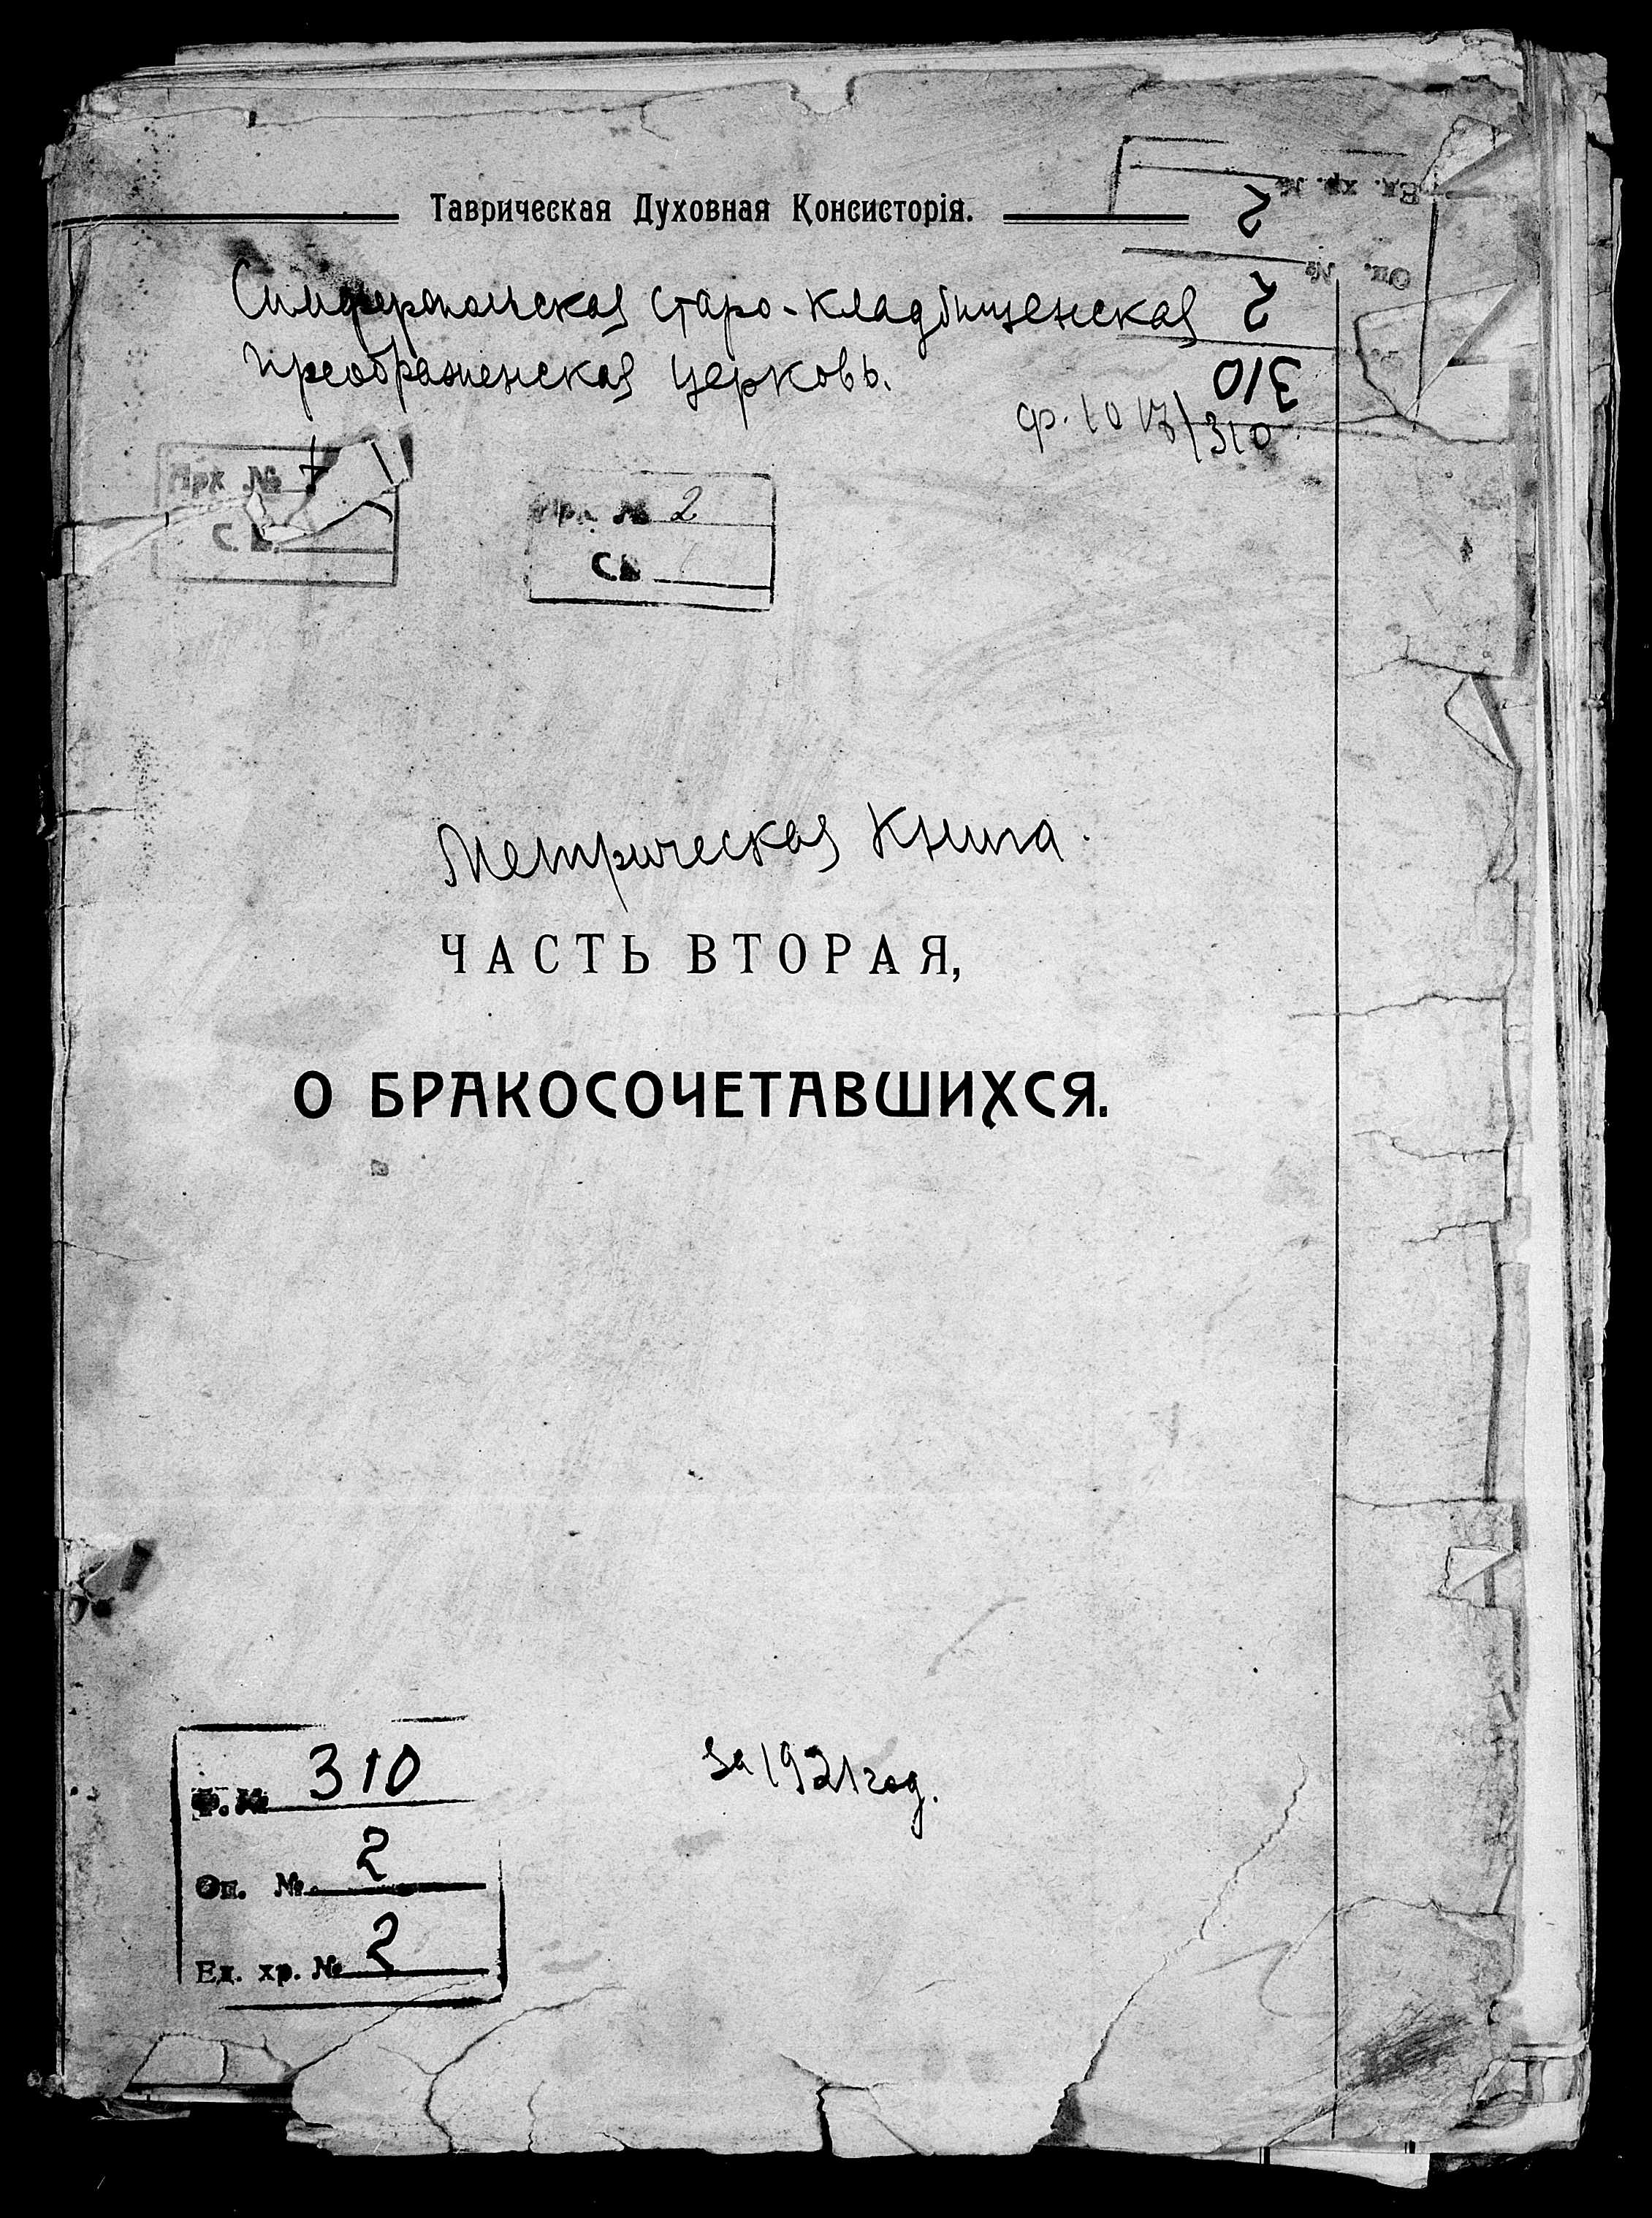 Ед. хр. №
2
Таврическая Духовная Консисторія.
Оп. №
2
Симферопольская Старо-Кладбищенская
Преображенская Церковь.
310
ф. 1017/310
Арх №
С. В.
№ 2
Св
Метрическая Книга.
ЧАСТЬ ВТОРАЯ,
О БРАКОСОЧЕТАВШИХСЯ.
Ф. № 310
Оп. № 2
Ед. хр. № 2
За 1921 год.